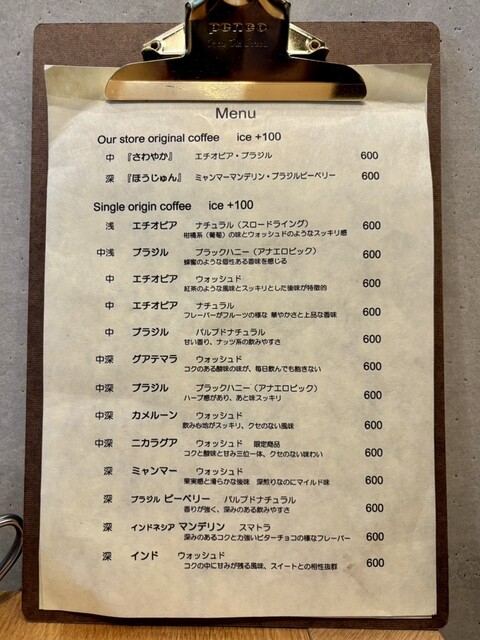 penco
Menu
Our store original coffee ice +100
中 『さわやか』 エチオピア・ブラジル 600
深 『ほうじゅん』 ミャンマーマンデリン・ブラジルピーベリー 600
Single origin coffee ice +100
浅 エチオピア ナチュラル（スロードライング） 600
柑橘系（葡萄）の味とウォッシュドのようなスッキリ感
中浅 ブラジル ブラックハニー（アナエロビック） 600
蜂蜜のような個性ある香味を感じる
中 エチオピア ウォッシュド 600
紅茶のような風味とスッキリとした後味が特徴的
中 エチオピア ナチュラル 600
フレーバーがフルーツの様な 華やかさと上品な香味
中 ブラジル パルプドナチュラル 600
甘い香り、ナッツ系の飲みやすさ
中深 グアテマラ ウォッシュド 600
コクのある酸味の味が、毎日飲んでも飽きない
中深 ブラジル ブラックハニー（アナエロビック） 600
ハーブ感があり、あと味スッキリ
中深 カメルーン ウォッシュド 600
飲み心地がスッキリ、クセのない風味
中深 ニカラグア ウォッシュド 限定商品 600
コクと酸味と甘み三位一体、クセのない味わい
深 ミャンマー ウォッシュド 600
果実感と滑らかな後味 深煎りなのにマイルド味
深 ブラジル ピーベリー パルプドナチュラル 600
香りが強く、深みのある飲みやすさ
深 インドネシア マンデリン スマトラ 600
深みのあるコクと力強いビターチョコの様なフレーバー
深 インド ウォッシュド 600
コクの中に甘みが残る風味、スイートとの相性抜群